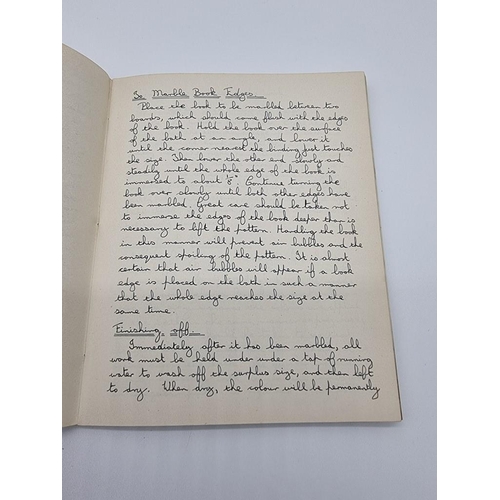 To Marble Book Edges
Place the book to be marbled between two
boards, which should come flush with the edges
of the book. Hold the book over the surface
of the bath at an angle, and lower it
until the corner nearest the binding just touches
the size. Then lower the other end slowly and
steadily until the whole edge of the book is
immersed to about 1/8". Continue turning the
book over slowly until both other edges have
been marbled. Great care should be taken not
to immerse the edges of the book deeper than is
necessary to lift the pattern. Handling the book
in this manner will prevent air bubbles and the
consequent spoiling of the pattern. It is almost
certain that air bubbles will appear if a book
edge is placed on the bath in such a manner
that the whole edge reaches the size at the
same time.
Finishing off
Immediately after it has been marbled, all
work must be held under under a tap of running
water to wash off the surplus size, and then left
to dry. When dry, the colour will be permanently